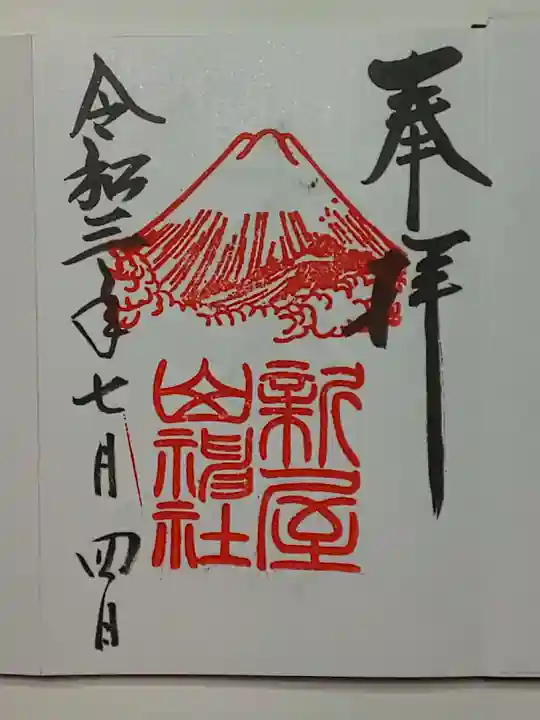 奉拝
新屋
山神社
令和三年七月四日